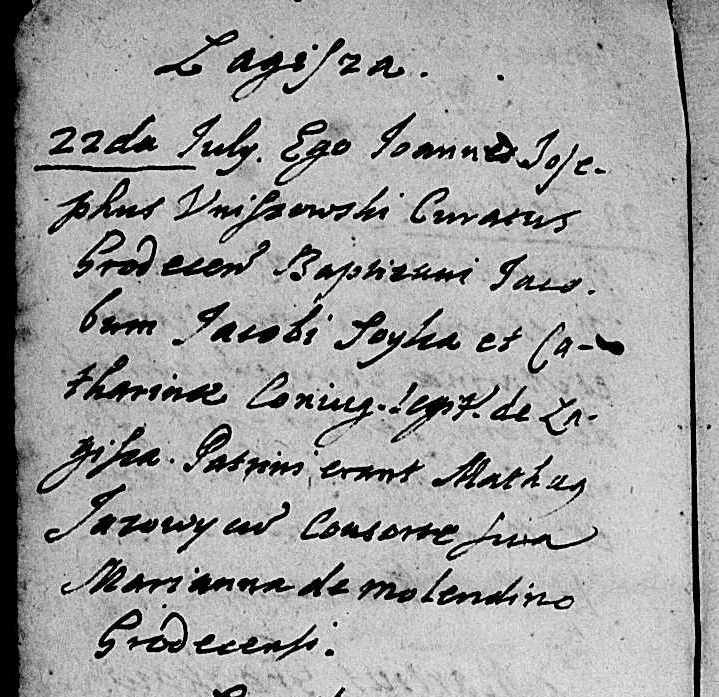 Lagiſza.
22da July. Ego Joannes Joſe-
phus Uniſzewski Curatus
Grodecen̄ Baptizavi Jaco-
bum Jacobi Soyka et Ca-
tharinæ Coniug. legit. de La-
giſza. Patrini erant Mathæus
Jarowy cū Consorte ſua
Marianna de molendino
Grodecenſi.